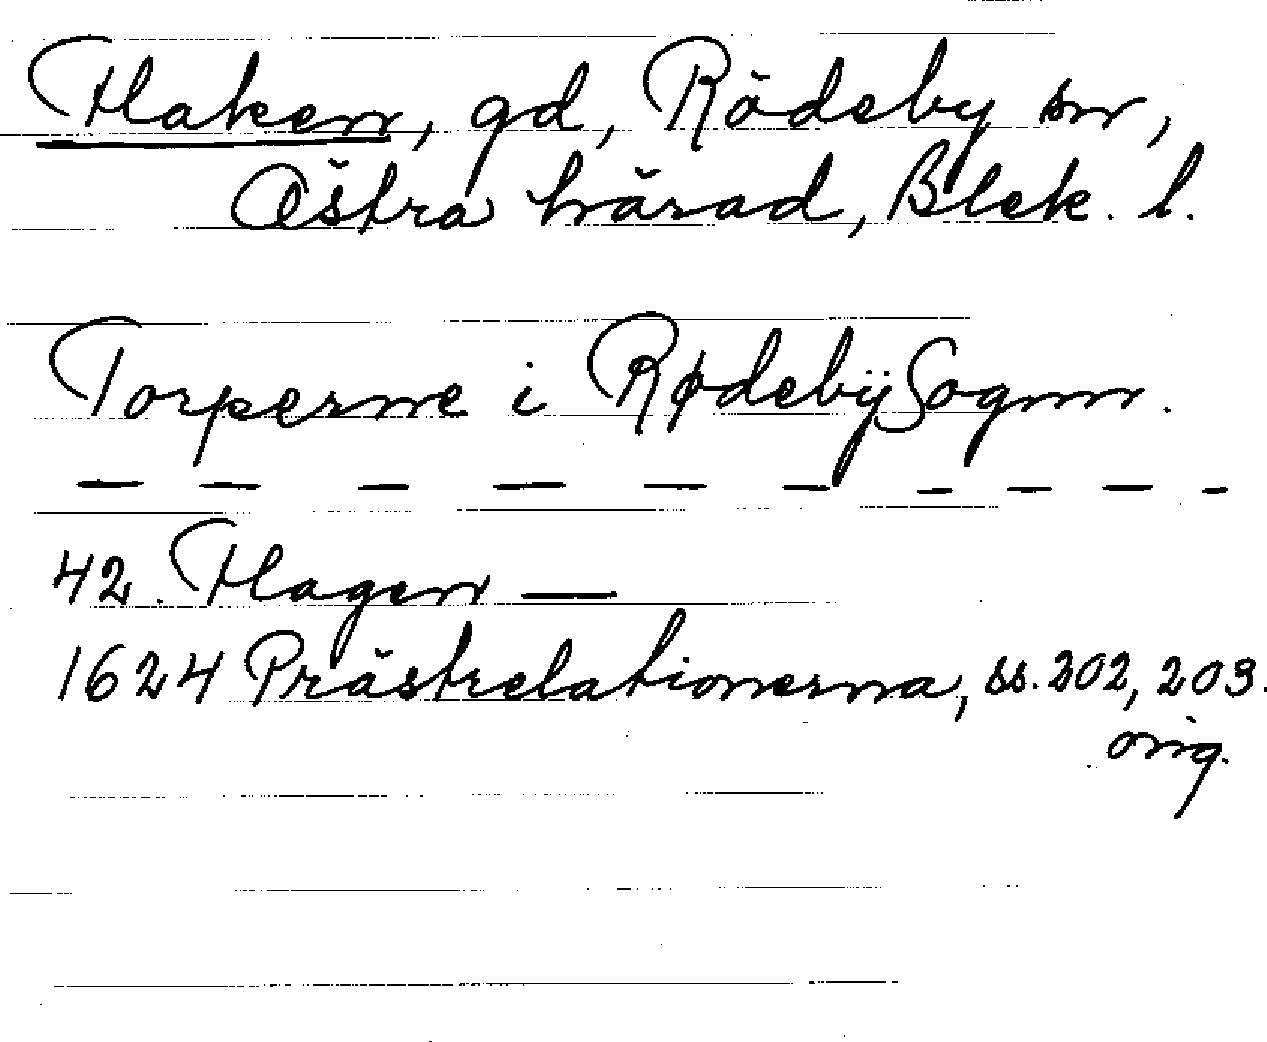 Haken, gd, Rödeby sn,
Östra härad, Blek. l.
Torperne i Rødebÿ Sognn.
— — — — — — — — — —
42. Hagen —
1624 Prästrelationerna, ss. 202, 203.
orig.